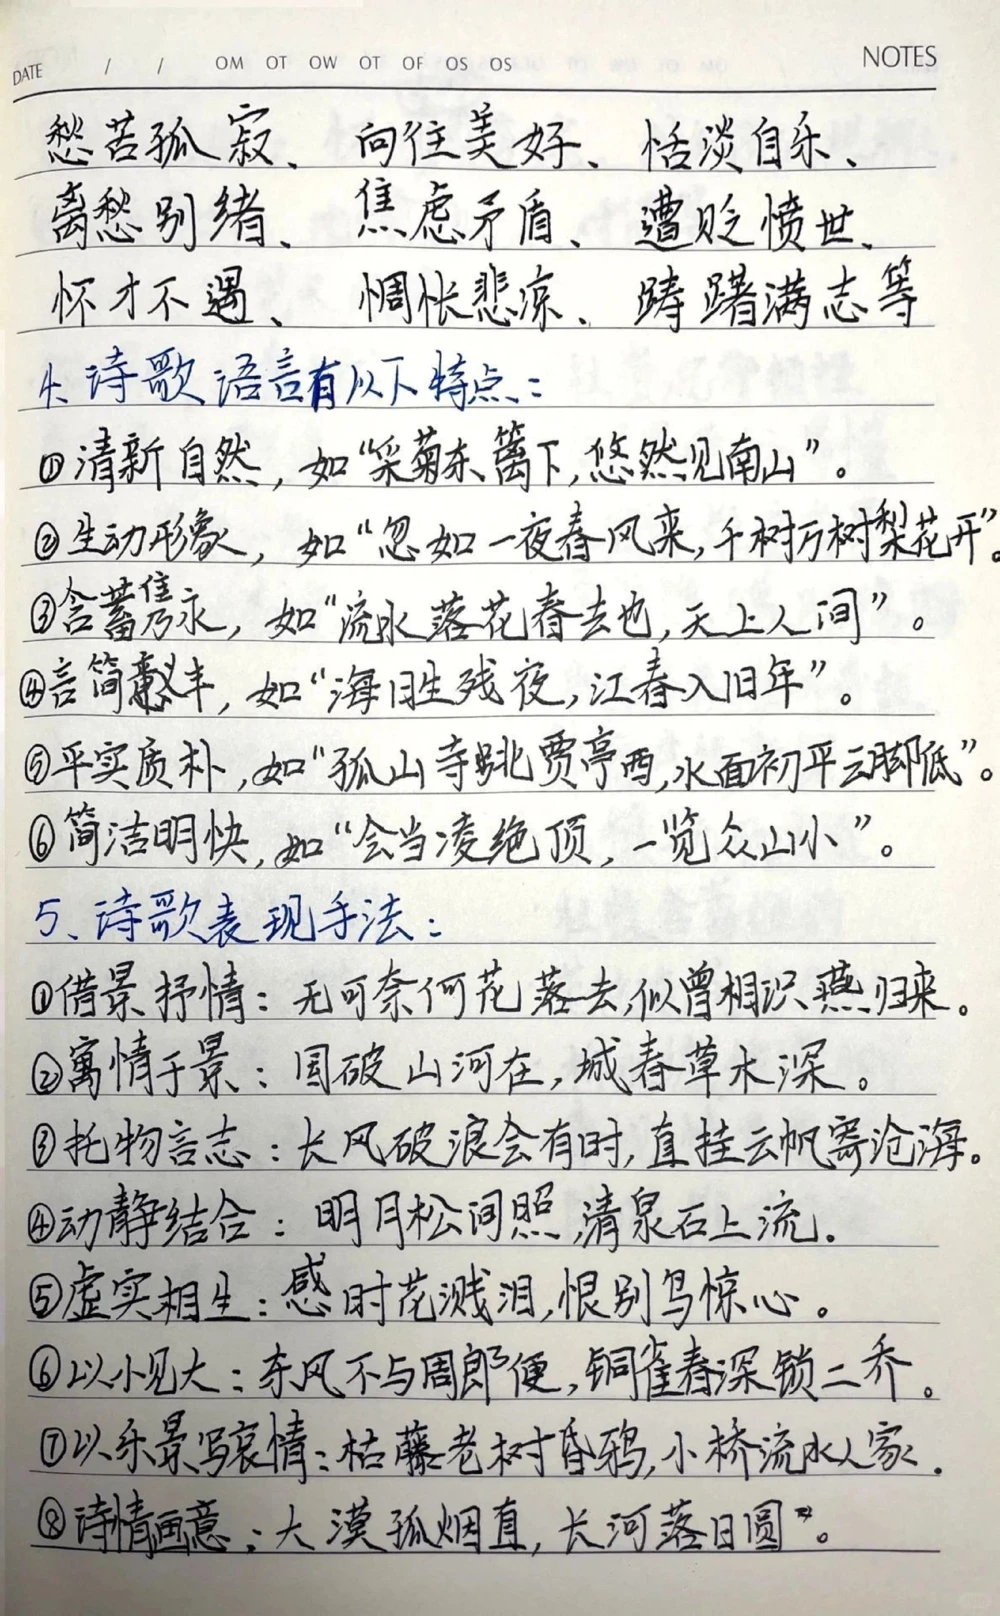 DATE / / OM OT OW OT OF OS OS NOTES
愁苦孤寂、 向往美好、 恬淡自乐、
离愁别绪、 焦虑矛盾、 遭贬愤世、
怀才不遇、 惆怅悲凉、 踌躇满志等
4、诗歌语言有以下特点:
①清新自然，如“采菊东篱下，悠然见南山”。
②生动形象，如“忽如一夜春风来，千树万树梨花开”。
③含蓄隽永，如“流水落花春去也，天上人间”。
④言简义丰，如“海日生残夜，江春入旧年”。
⑤平实质朴，如“孤山寺北贾亭西，水面初平云脚低”。
⑥简洁明快，如“会当凌绝顶，一览众山小”。
5、诗歌表现手法:
①借景抒情: 无可奈何花落去，似曾相识燕归来。
②寓情于景: 国破山河在，城春草木深。
③托物言志: 长风破浪会有时，直挂云帆济沧海。
④动静结合: 明月松间照，清泉石上流.
⑤虚实相生: 感时花溅泪，恨别鸟惊心。
⑥以小见大: 东风不与周郎便，铜雀春深锁二乔。
⑦以乐景写哀情: 枯藤老树昏鸦，小桥流水人家.
⑧诗情画意: 大漠孤烟直，长河落日圆”。